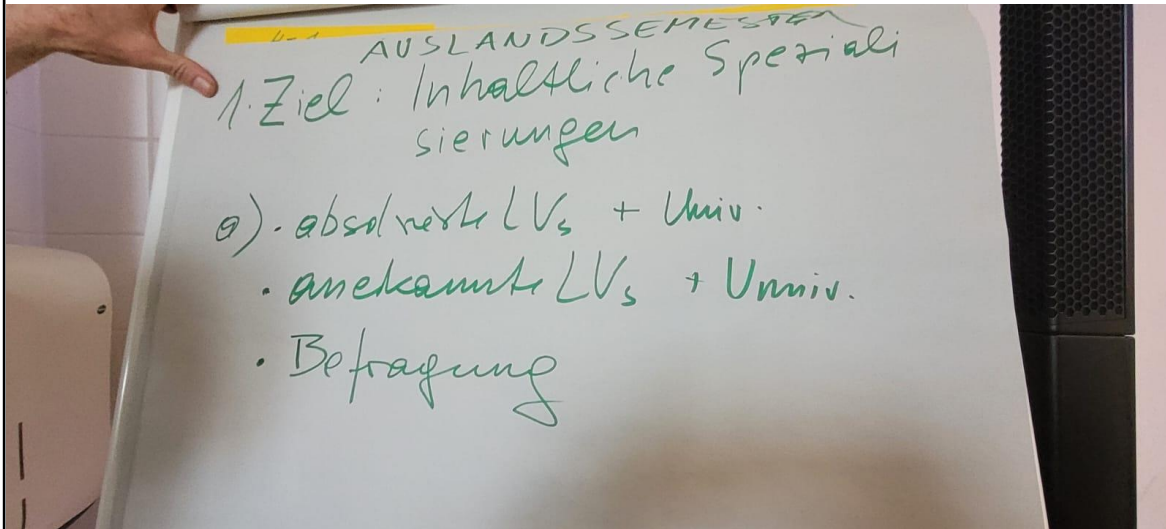 AUSLANDSSEMESTER
1. Ziel: Inhaltliche Speziali
sierungen
a) · absolvierte LVs + Univ.
· anerkannte LVs + Univ.
· Befragung